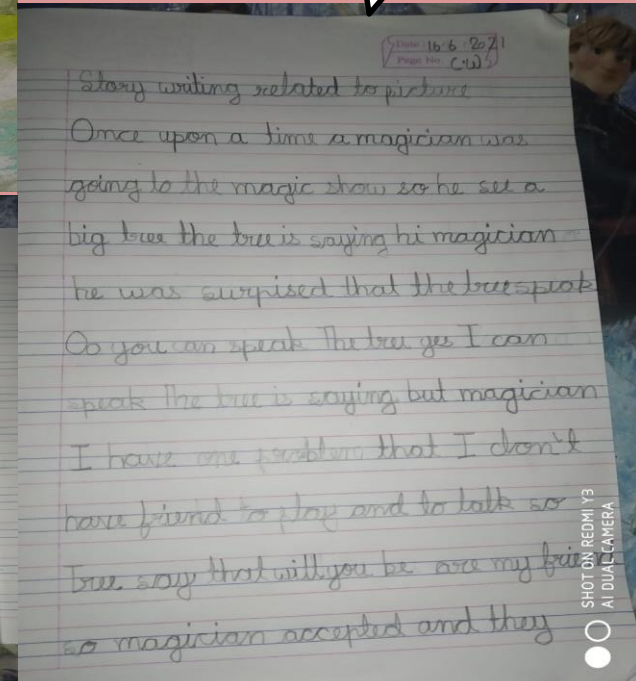 Date: 16.6.2021
Page No. C.W
Story writing related to picture
Once upon a time a magician was
going to the magic show so he see a
big tree the tree is saying hi magician
he was surpised that the tree speak
Oo you can speak The tree yes I can
speak The tree is saying but magician
I have one problem that I don't
have friend to play and to talk so
Tree say that will you be are my friend
so magician accepted and they
SHOT ON REDMI Y3
AI DUAL CAMERA